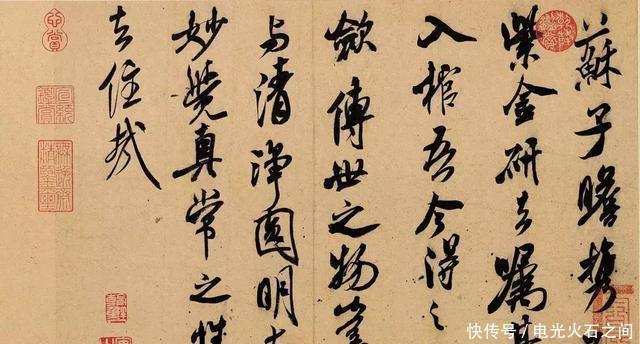 蘇子瞻携
紫金研去嘱
入棺吾今得之
歛傳世之物豈
与清淨圓明
妙覺真常之性
去住哉
快传号/电光火石之间